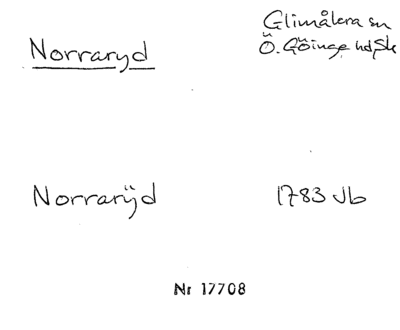 Norraryd
Glimåkra sn
Ö. Göinge hd, Sk
Norrarÿd
1783 Jb
Nr 17708